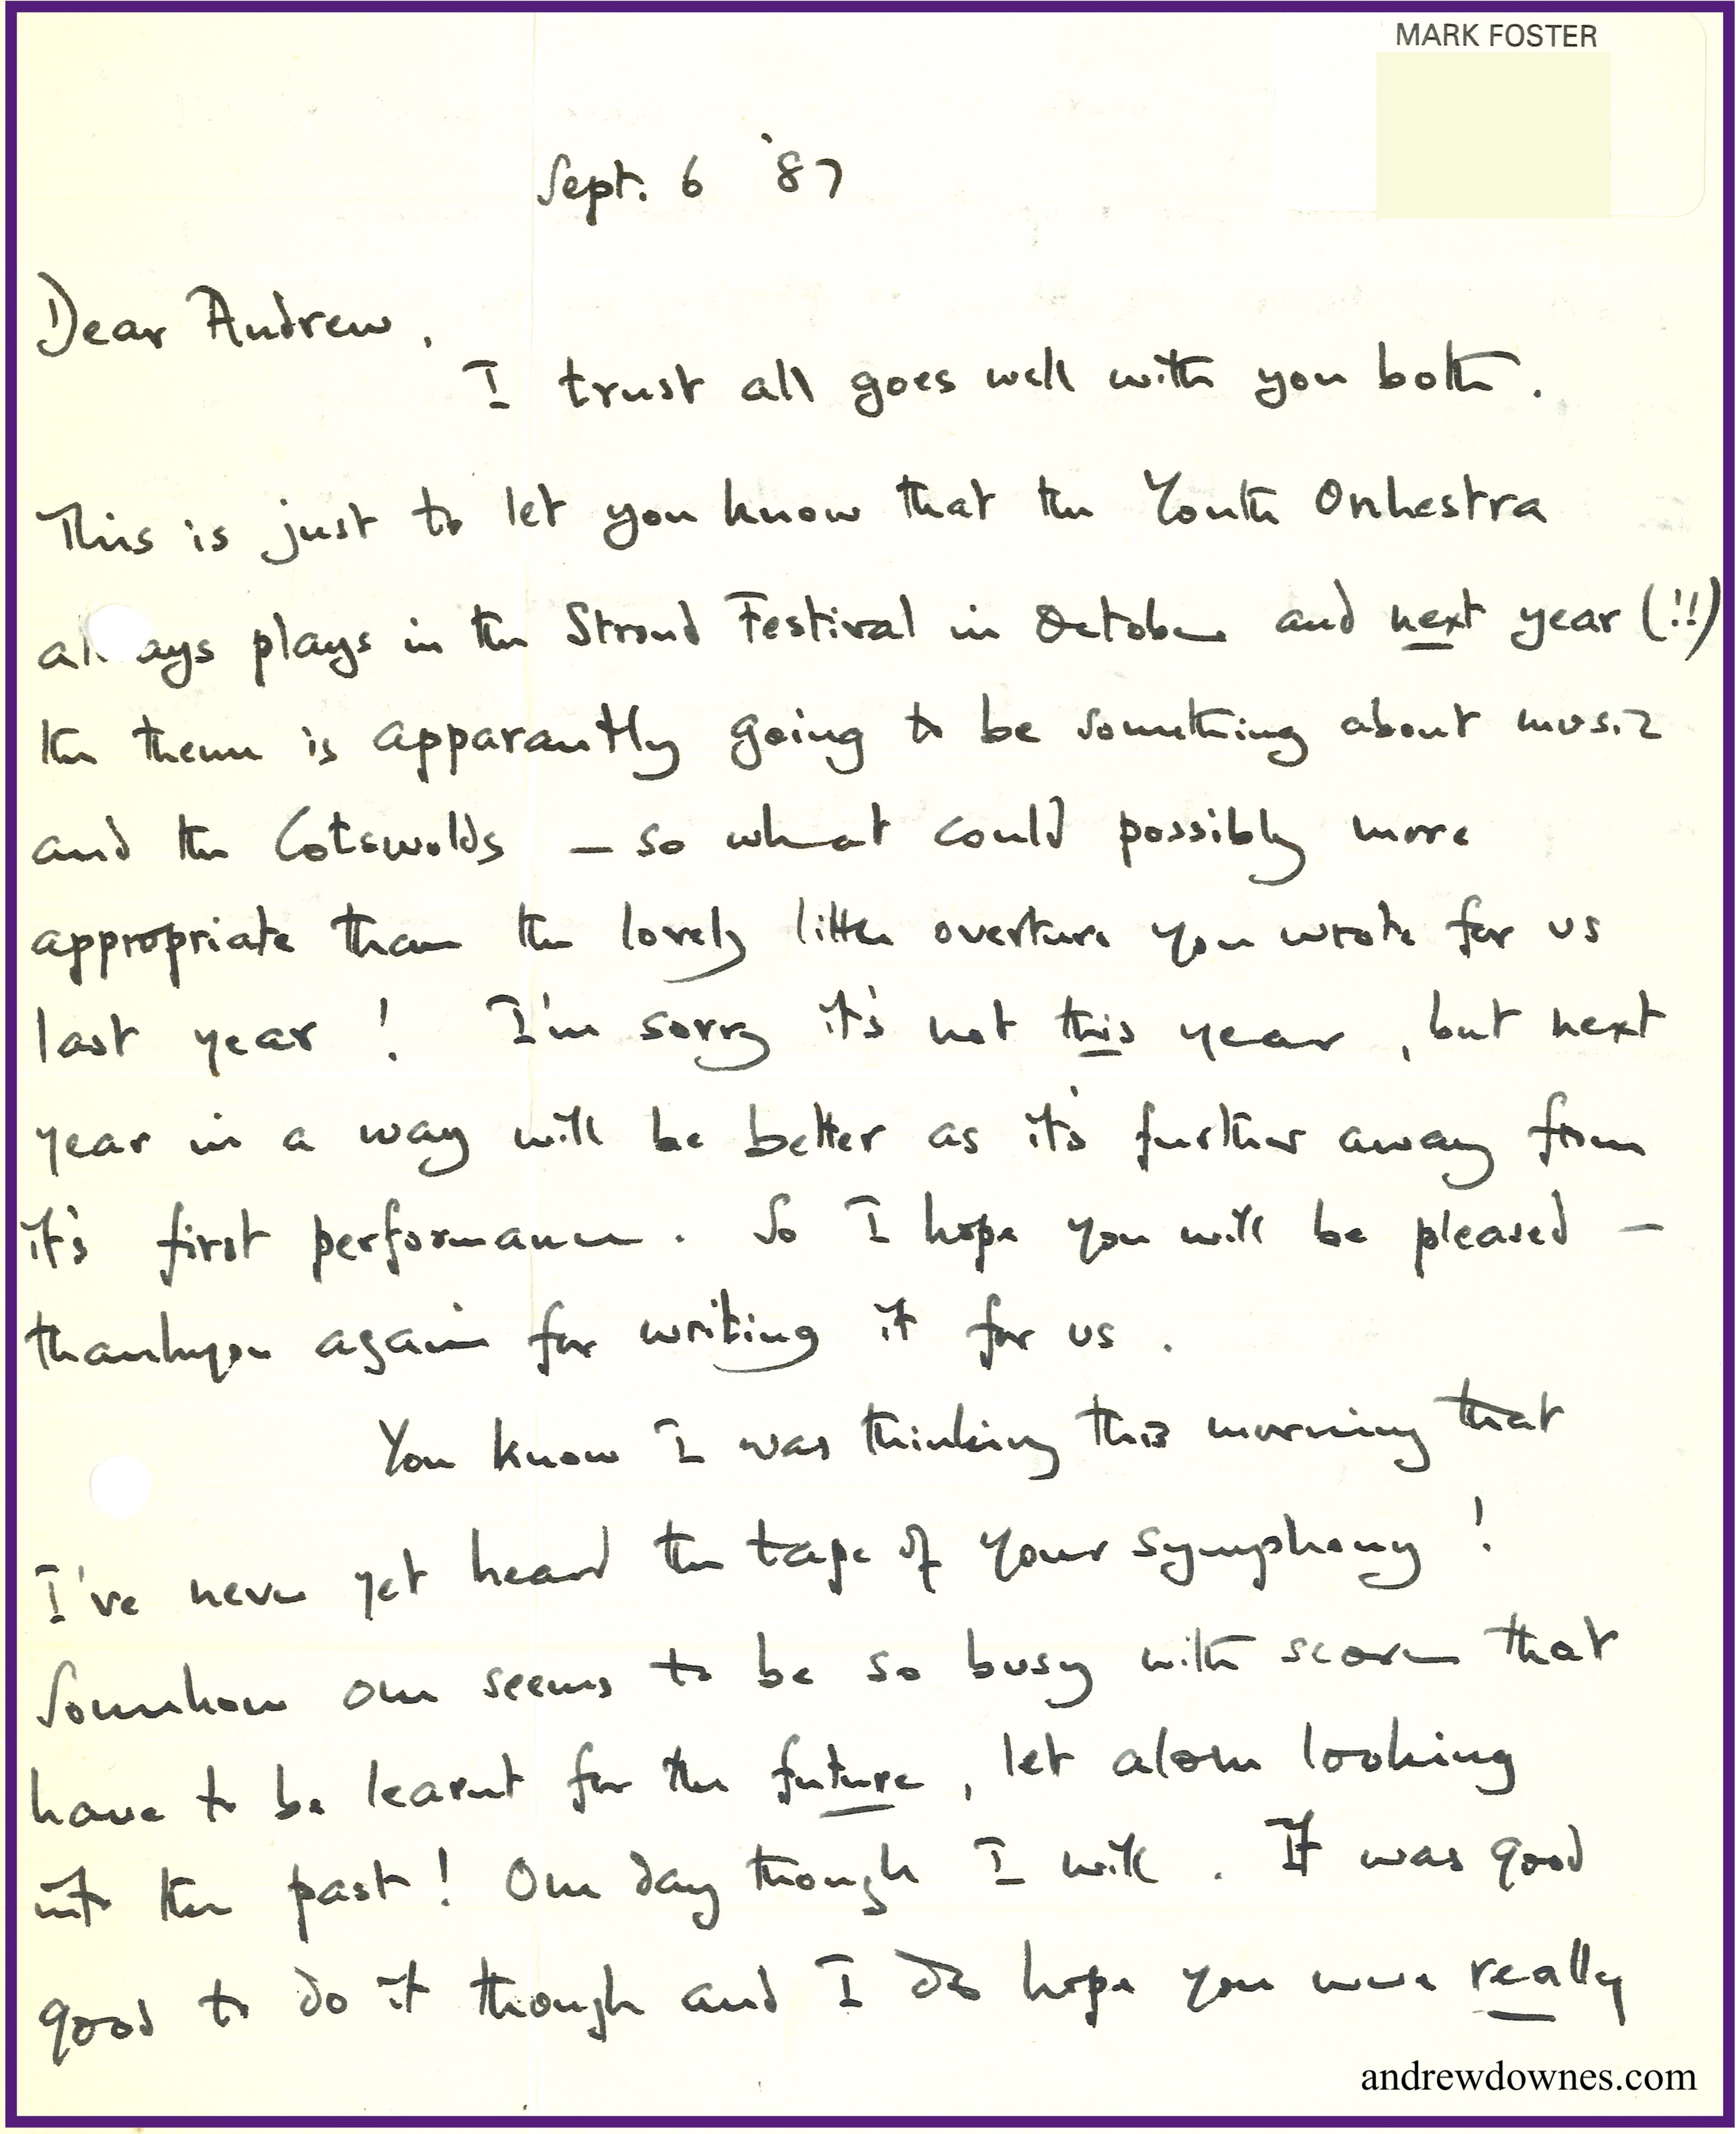 MARK FOSTER
Sept. 6 '87
Dear Andrew,
I trust all goes well with you both.
This is just to let you know that the Youth Orchestra
always plays in the Stroud Festival in October and next year (!!)
the theme is apparantly going to be something about music
and the Cotswolds – so what could possibly more
appropriate than the lovely little overture you wrote for us
last year! I'm sorry it's not this year, but next
year in a way will be better as it's further away from
it's first performance. So I hope you will be pleased –
thankyou again for writing it for us.
You know I was thinking this morning that
I've never yet heard the tape of your symphony!
Somehow one seems to be so busy with scores that
have to be learnt for the future, let alone looking
into the past! One day though I will. It was good
good to do it though and I do hope you were really
andrewdownes.com